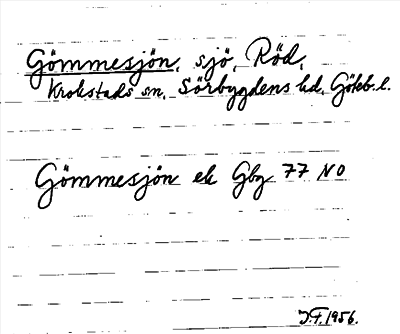 Gömmesjön, sjö, Röd,
Krokstads sn, Sörbygdens hd, Göteb. l.
Gömmesjön ek Gbg 77 NO
J.F. 1956.